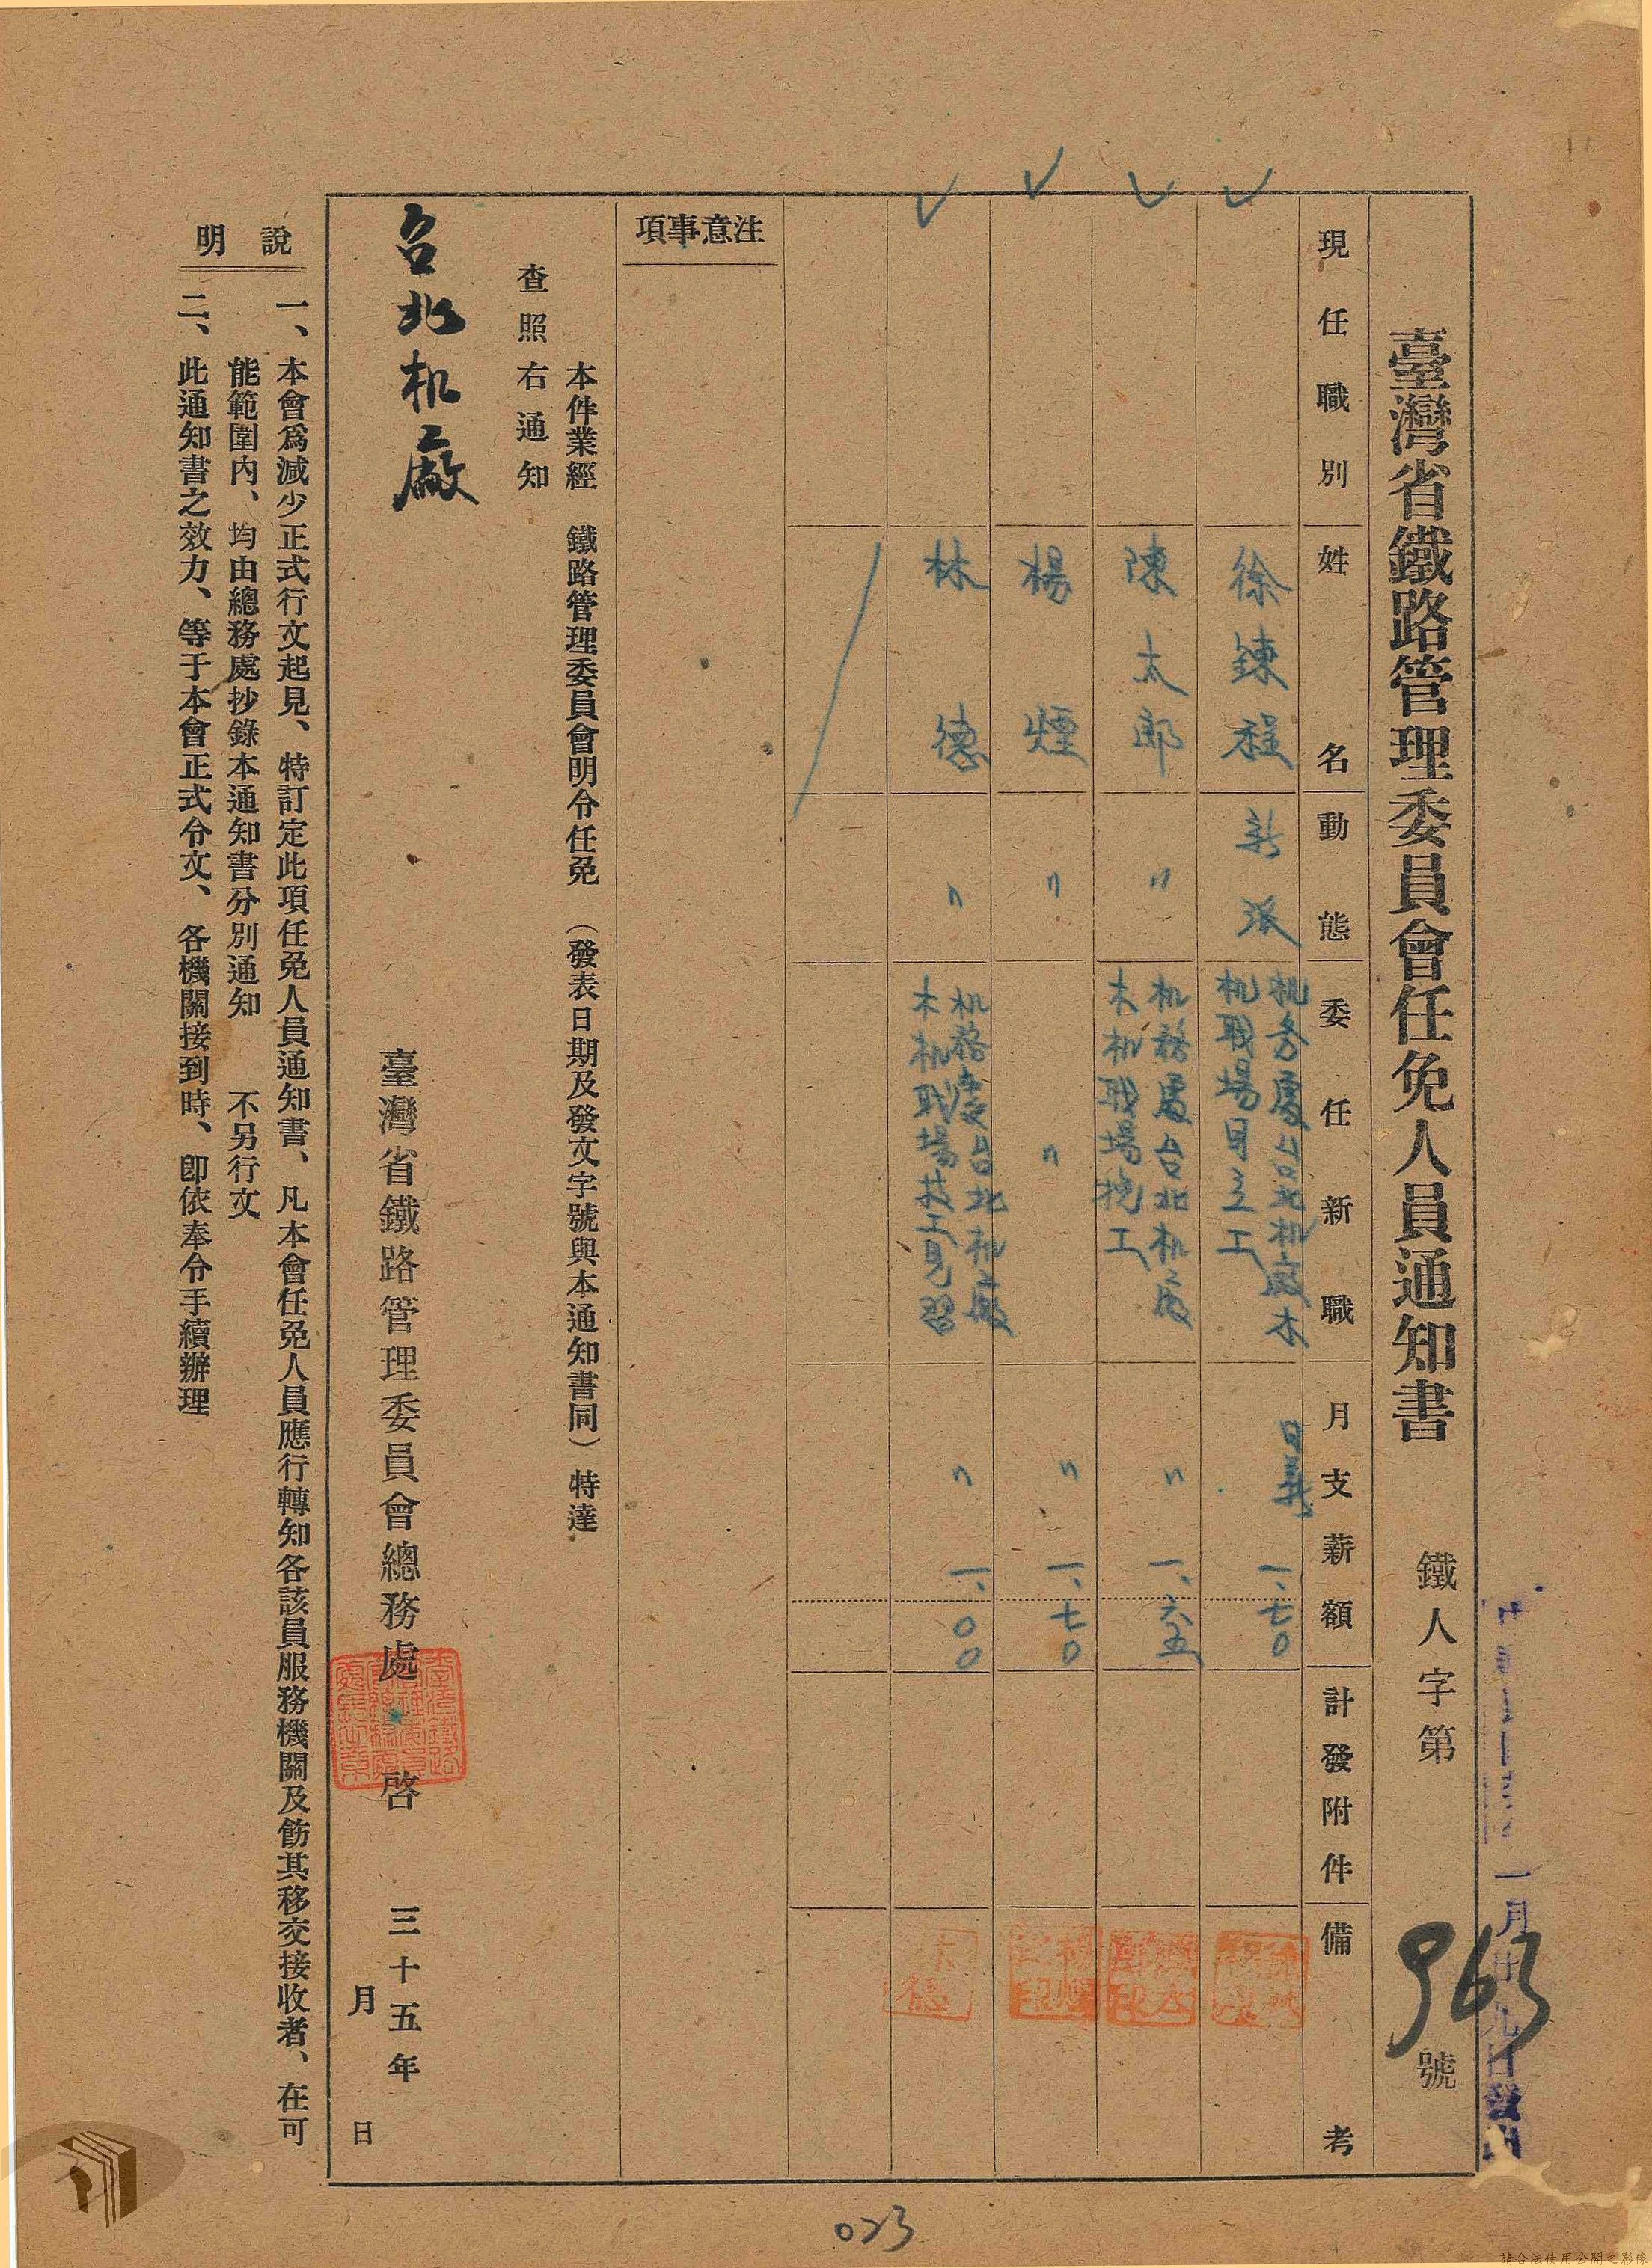 臺灣省鐵路管理委員會任免人員通知書
鐵人字第963號
一月廿九日發出
現任職別
姓名
動態
委任新職
月支薪額
計發附件
備考
徐鍊程
新派
机务處台北机廠木
机職場目立工
日薪
一、七〇
陳太郎
〃
机務處台北机廠
木机職場挽工
〃
一、六五
楊煙
〃
〃
〃
一、七〇
林德
〃
机務處台北机廠
木机職場技工見習
〃
一、〇〇
注意事項
本件業經 鐵路管理委員會明令任免 (發表日期及發文字號與本通知書同) 特達
查照右通知
台北机廠
臺灣省鐵路管理委員會總務處 啓
三十五年
月 日
說明
一、本會爲減少正式行文起見、特訂定此項任免人員通知書、凡本會任免人員應行轉知各該員服務機關及飭其移交接收者、在可
能範圍内、均由總務處抄錄本通知書分別通知 不另行文
二、此通知書之效力、等于本會正式令文、各機關接到時、卽依奉令手續辦理
023
請合法使用公開之影像